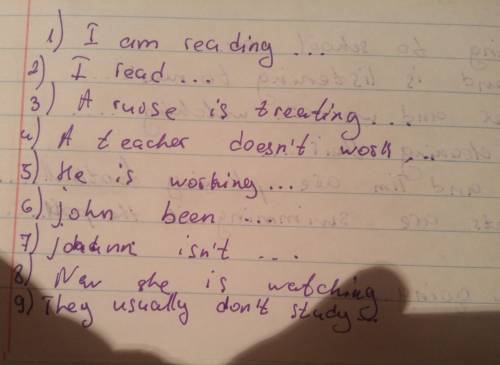 1) I am reading ...
2) I read ...
3) A nuose is treating ...
4) A teacher doesn't work ...
5) He is working ...
6) John been ...
7) isn't ...
8) Now she is watching
9) They usually don't study